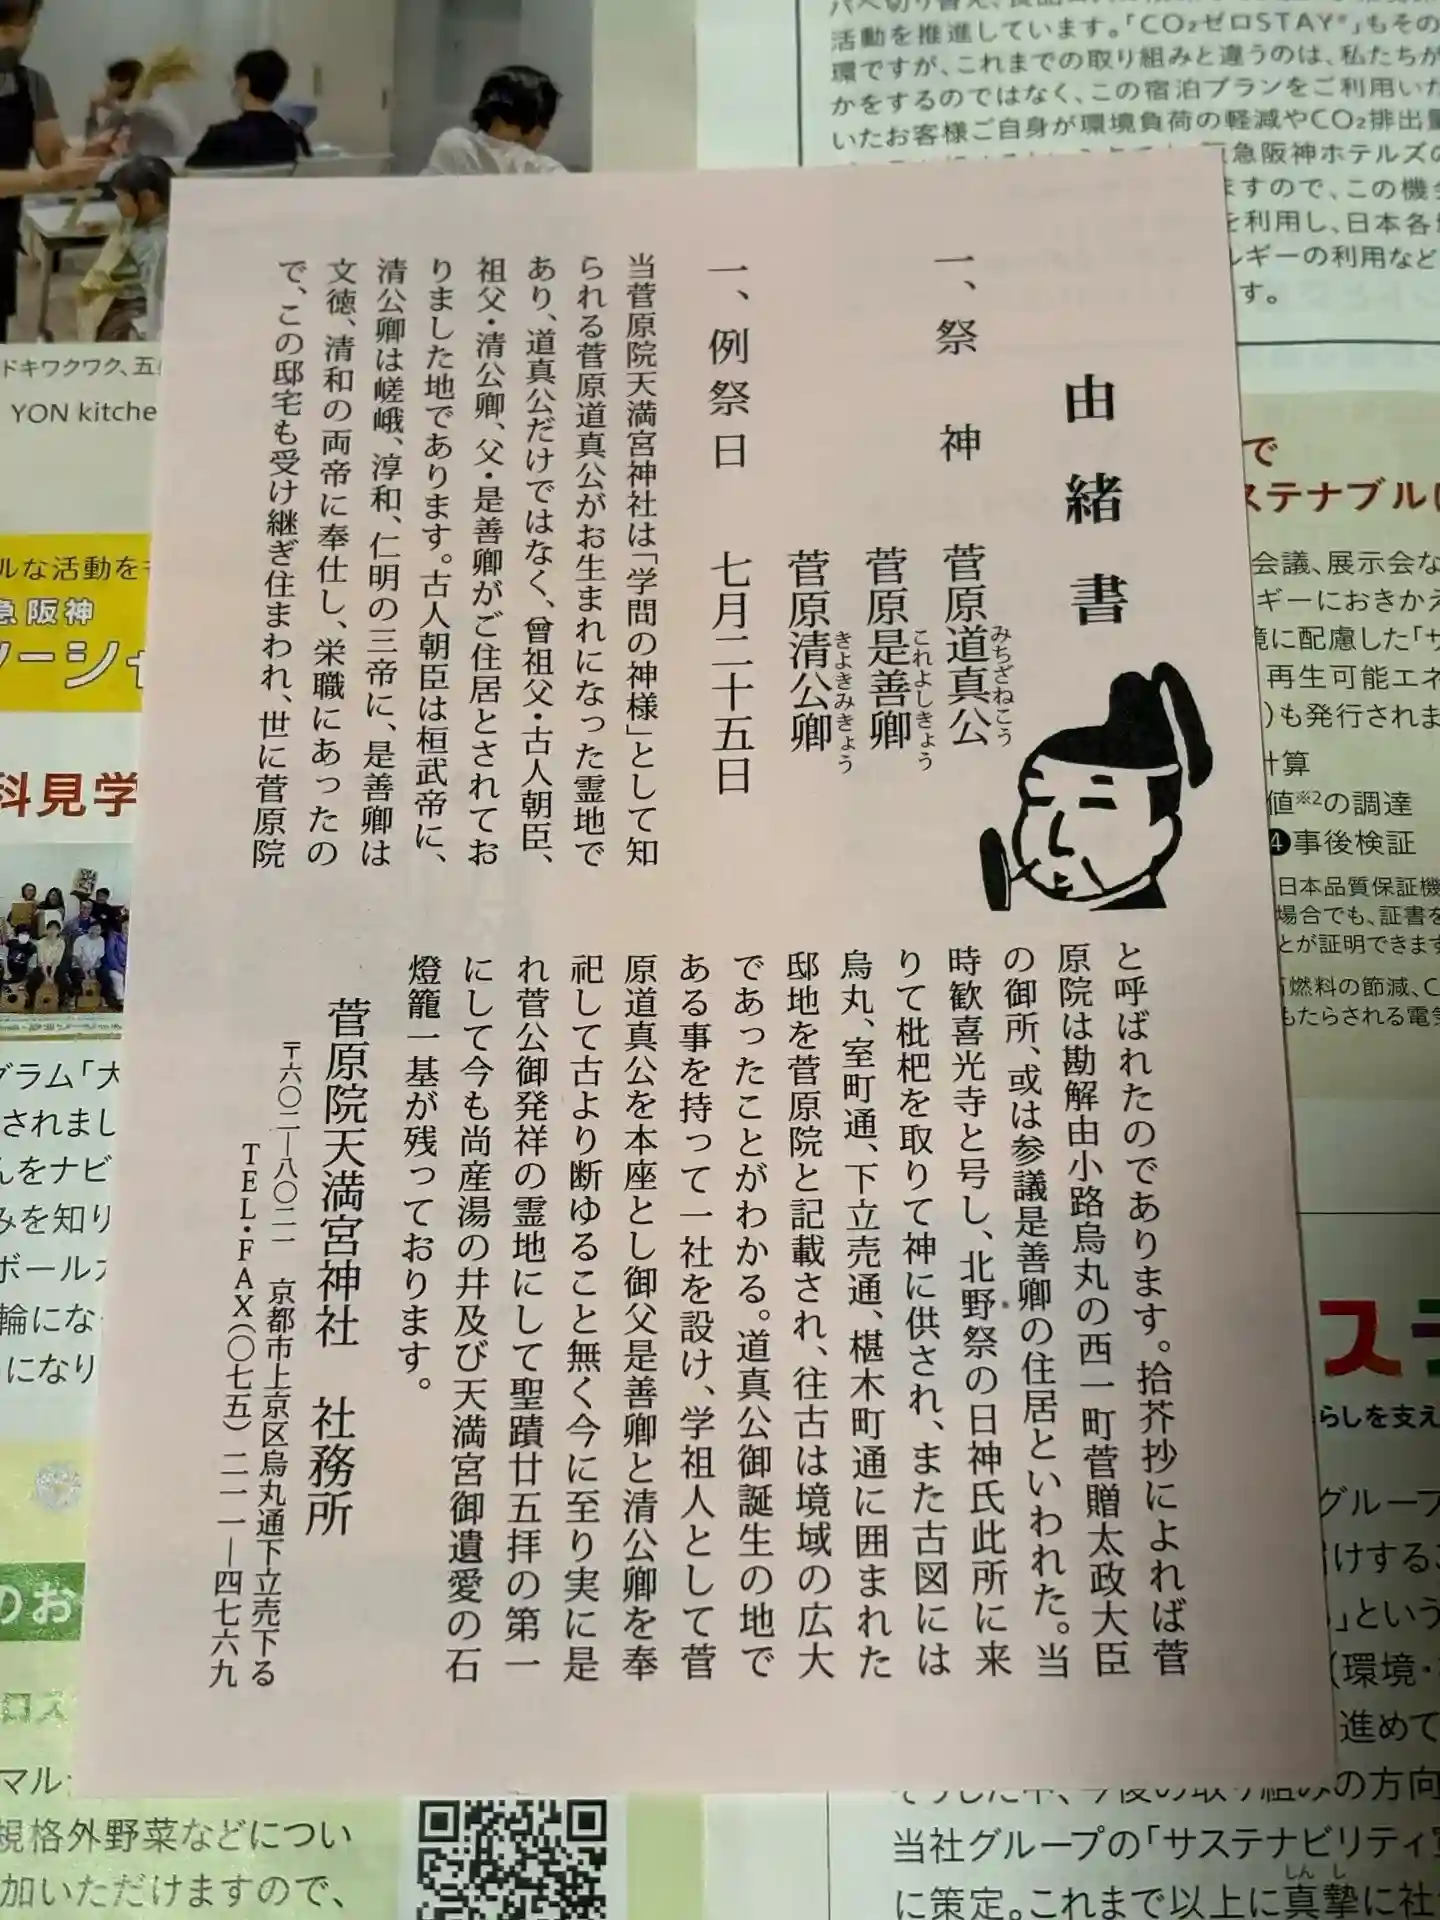 由緒書
一、祭神
菅原道真公
みちざねこう
菅原是善卿
これよしきょう
菅原清公卿
きよきみきょう
一、例祭日　七月二十五日
当菅原院天満宮神社は「学問の神様」として知
られる菅原道真公がお生まれになった霊地で
あり、道真公だけではなく、曾祖父・古人朝臣、
祖父・清公卿、父・是善卿がご住居とされてお
りました地であります。古人朝臣は桓武帝に、
清公卿は嵯峨、淳和、仁明の三帝に、是善卿は
文徳、清和の両帝に奉仕し、栄職にあったの
で、この邸宅も受け継ぎ住まわれ、世に菅原院
と呼ばれたのであります。拾芥抄によれば菅
原院は勘解由小路烏丸の西一町菅贈太政大臣
の御所、或は参議是善卿の住居といわれた。当
時歓喜光寺と号し、北野祭の日神氏此所に来
りて枇杷を取りて神に供され、また古図には
烏丸、室町通、下立売通、椹木町通に囲まれた
邸地を菅原院と記載され、往古は境域の広大
であったことがわかる。道真公御誕生の地で
ある事を持って一社を設け、学祖人として菅
原道真公を本座とし御父是善卿と清公卿を奉
祀して古より断ゆること無く今に至り実に是
れ菅公御発祥の霊地にして聖蹟廿五拝の第一
にして今も尚産湯の井及び天満宮御遺愛の石
燈籠一基が残っております。
菅原院天満宮神社　社務所
〒六〇二―八〇二一　京都市上京区烏丸通下立売下る
TEL・FAX(〇七五)二一一―四七六九
活動を推進しています。「CO₂ゼロSTAY®」もその
環ですが、これまでの取り組みと違うのは、私たちが
かをするのではなく、この宿泊プランをご利用いた
いたお客様ご自身が環境負荷の軽減やCO₂排出量
急阪神ホテルズの
ますので、この機会
を利用し、日本各地
ルギーの利用など
す。
で
ステナブルに
会議、展示会な
ギーにおきかえ
境に配慮した「サ
再生可能エネ
)も発行されま
計算
値※2の調達
❹事後検証
日本品質保証機
場合でも、証書を
とが証明できます
燃料の節減、C
もたらされる電気
ステ
らしを支え
グループ
けするこ
」という
(環境・
進めて
そうした中、今後の取り組みの方向
当社グループの「サステナビリティ
しんし
に策定。これまで以上に真摯に社
ドキワクワク、五
YON kitche
ルな活動を
急阪神
ソーシャ
科見学
グラム「大
されまし
んをナビ
みを知り
ボールス
輪にな
になり
のお
ロス
マル
規格外野菜などについ
加いただけますので、